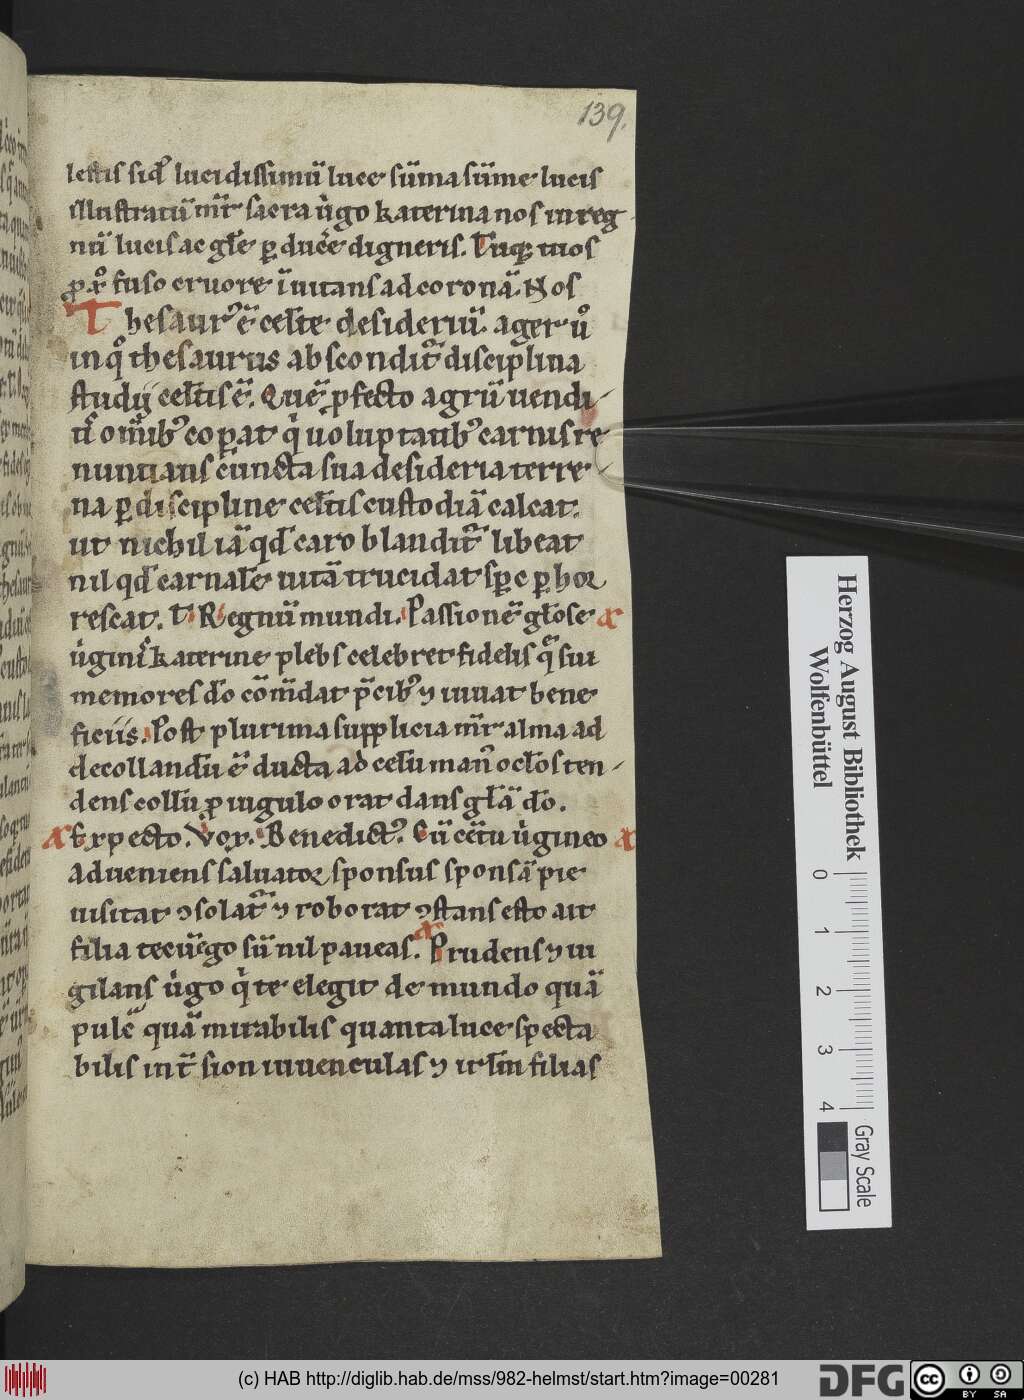 139.
lestis siđ lucidissimū luce sūma sūme lucis
illustratū mr̄ sacra v̇go katerina nos in reg
nū lucis ac gł̄e ꝑducē digneris. Tuqꝫ tuos
ꝓ xp̊ fuso cruore īuitans ad coronā. Nos
Thesaurꝰ ē cełte desideriū. ager ů
in q̊ thesaurus absconditᷣ disciplina
studij cełtis ē. Quē ꝓfecto agrū uendi
tˢ om̄ibꝰ coparat q̇ uoluptatibꝰ carnis re
nuntians cūncta sua desideria terre
na ꝑ discipline cełtis custodiā calcat.
ut nichil iā qđ caro blanditᷣ libeat
nil qđ carnalē uitā trucidat spc ꝑhor
rescat. t᷑ Regnū mundi. Passionē głose
v̇gini katerine plebs celebret fidelis q̄ sui
memores đo cōm̄dat p̄cibꝰ ⁊ iuuat bene
ficiis. Post plurima supplicia mr̄ alma ad
decollanđū ē ducta ad celū manꝰ oclōs ten
dens collū ꝓ iugulo orat dans głā đo.
Expecto. Vox. Benedictꝰ. Cū cetū v̇gineo
adueniens saluator sponsus sponsā pie
uisitat ꝯsolatᷣ ⁊ roborat ꝯstans esto ait
filia tecū ego sū nil paueas. Prudens ⁊ ui
gilans v̇go q̇ te elegit de mundo quā
pulc̄ quā mirabilis quanta luce specta
bilis int̄ sion iuuenculas ⁊ irłm filias
Herzog August Bibliothek
Wolfenbüttel
0 1 2 3 4
Gray Scale
(c) HAB http://diglib.hab.de/mss/982-helmst/start.htm?image=00281
DFG
cc BY SA